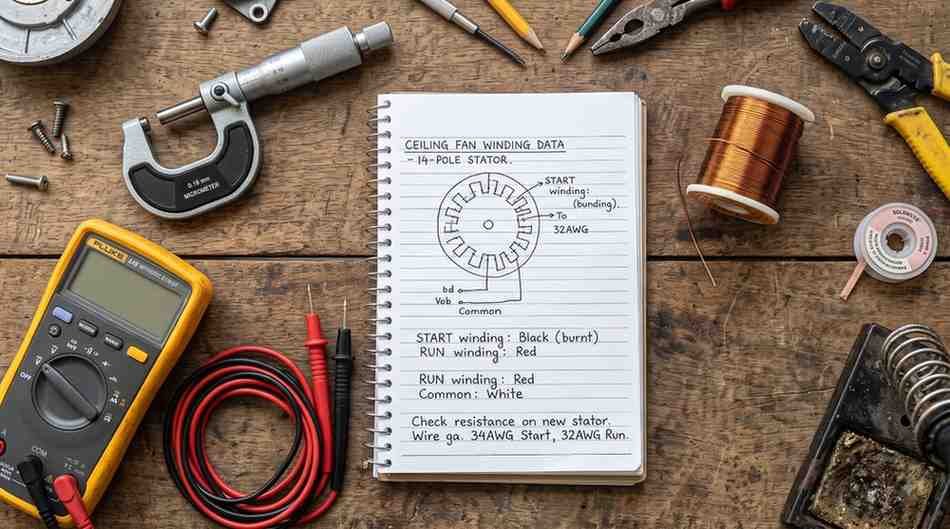 CEILING FAN WINDING DATA
- 14-POLE STATOR.
START
winding:
(bunding).
To
32AWG
bd
Vob
Common
START winding: Black (burnt)
RUN winding: Red
RUN winding: Red
Common: White
Check resistance on new stator.
Wire ga. 34AWG Start, 32AWG Run.
MICROMETER
FLUKE
OFF
COM